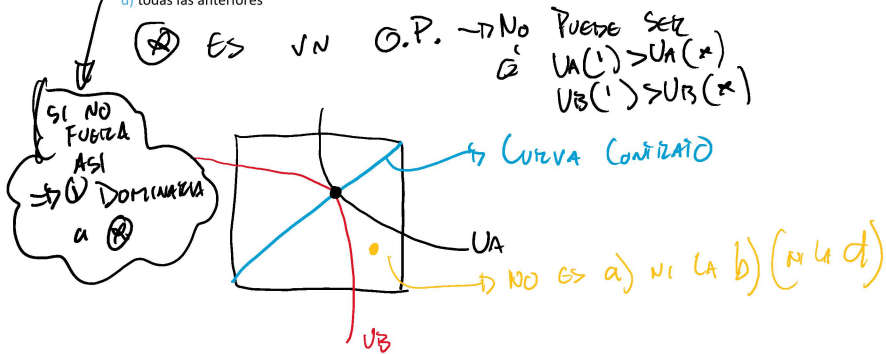 d) todas las anteriores
⊛ ES UN O.P. → NO PUEDE SER
UA(1) > UA(*)
UB(1) > UB(*)
SI NO
FUERA
ASI
⇒ ① DOMINARIA
a ⊛
CURVA CONTRATO
UA
NO ES a) NI LA b) (NI LA d)
UB